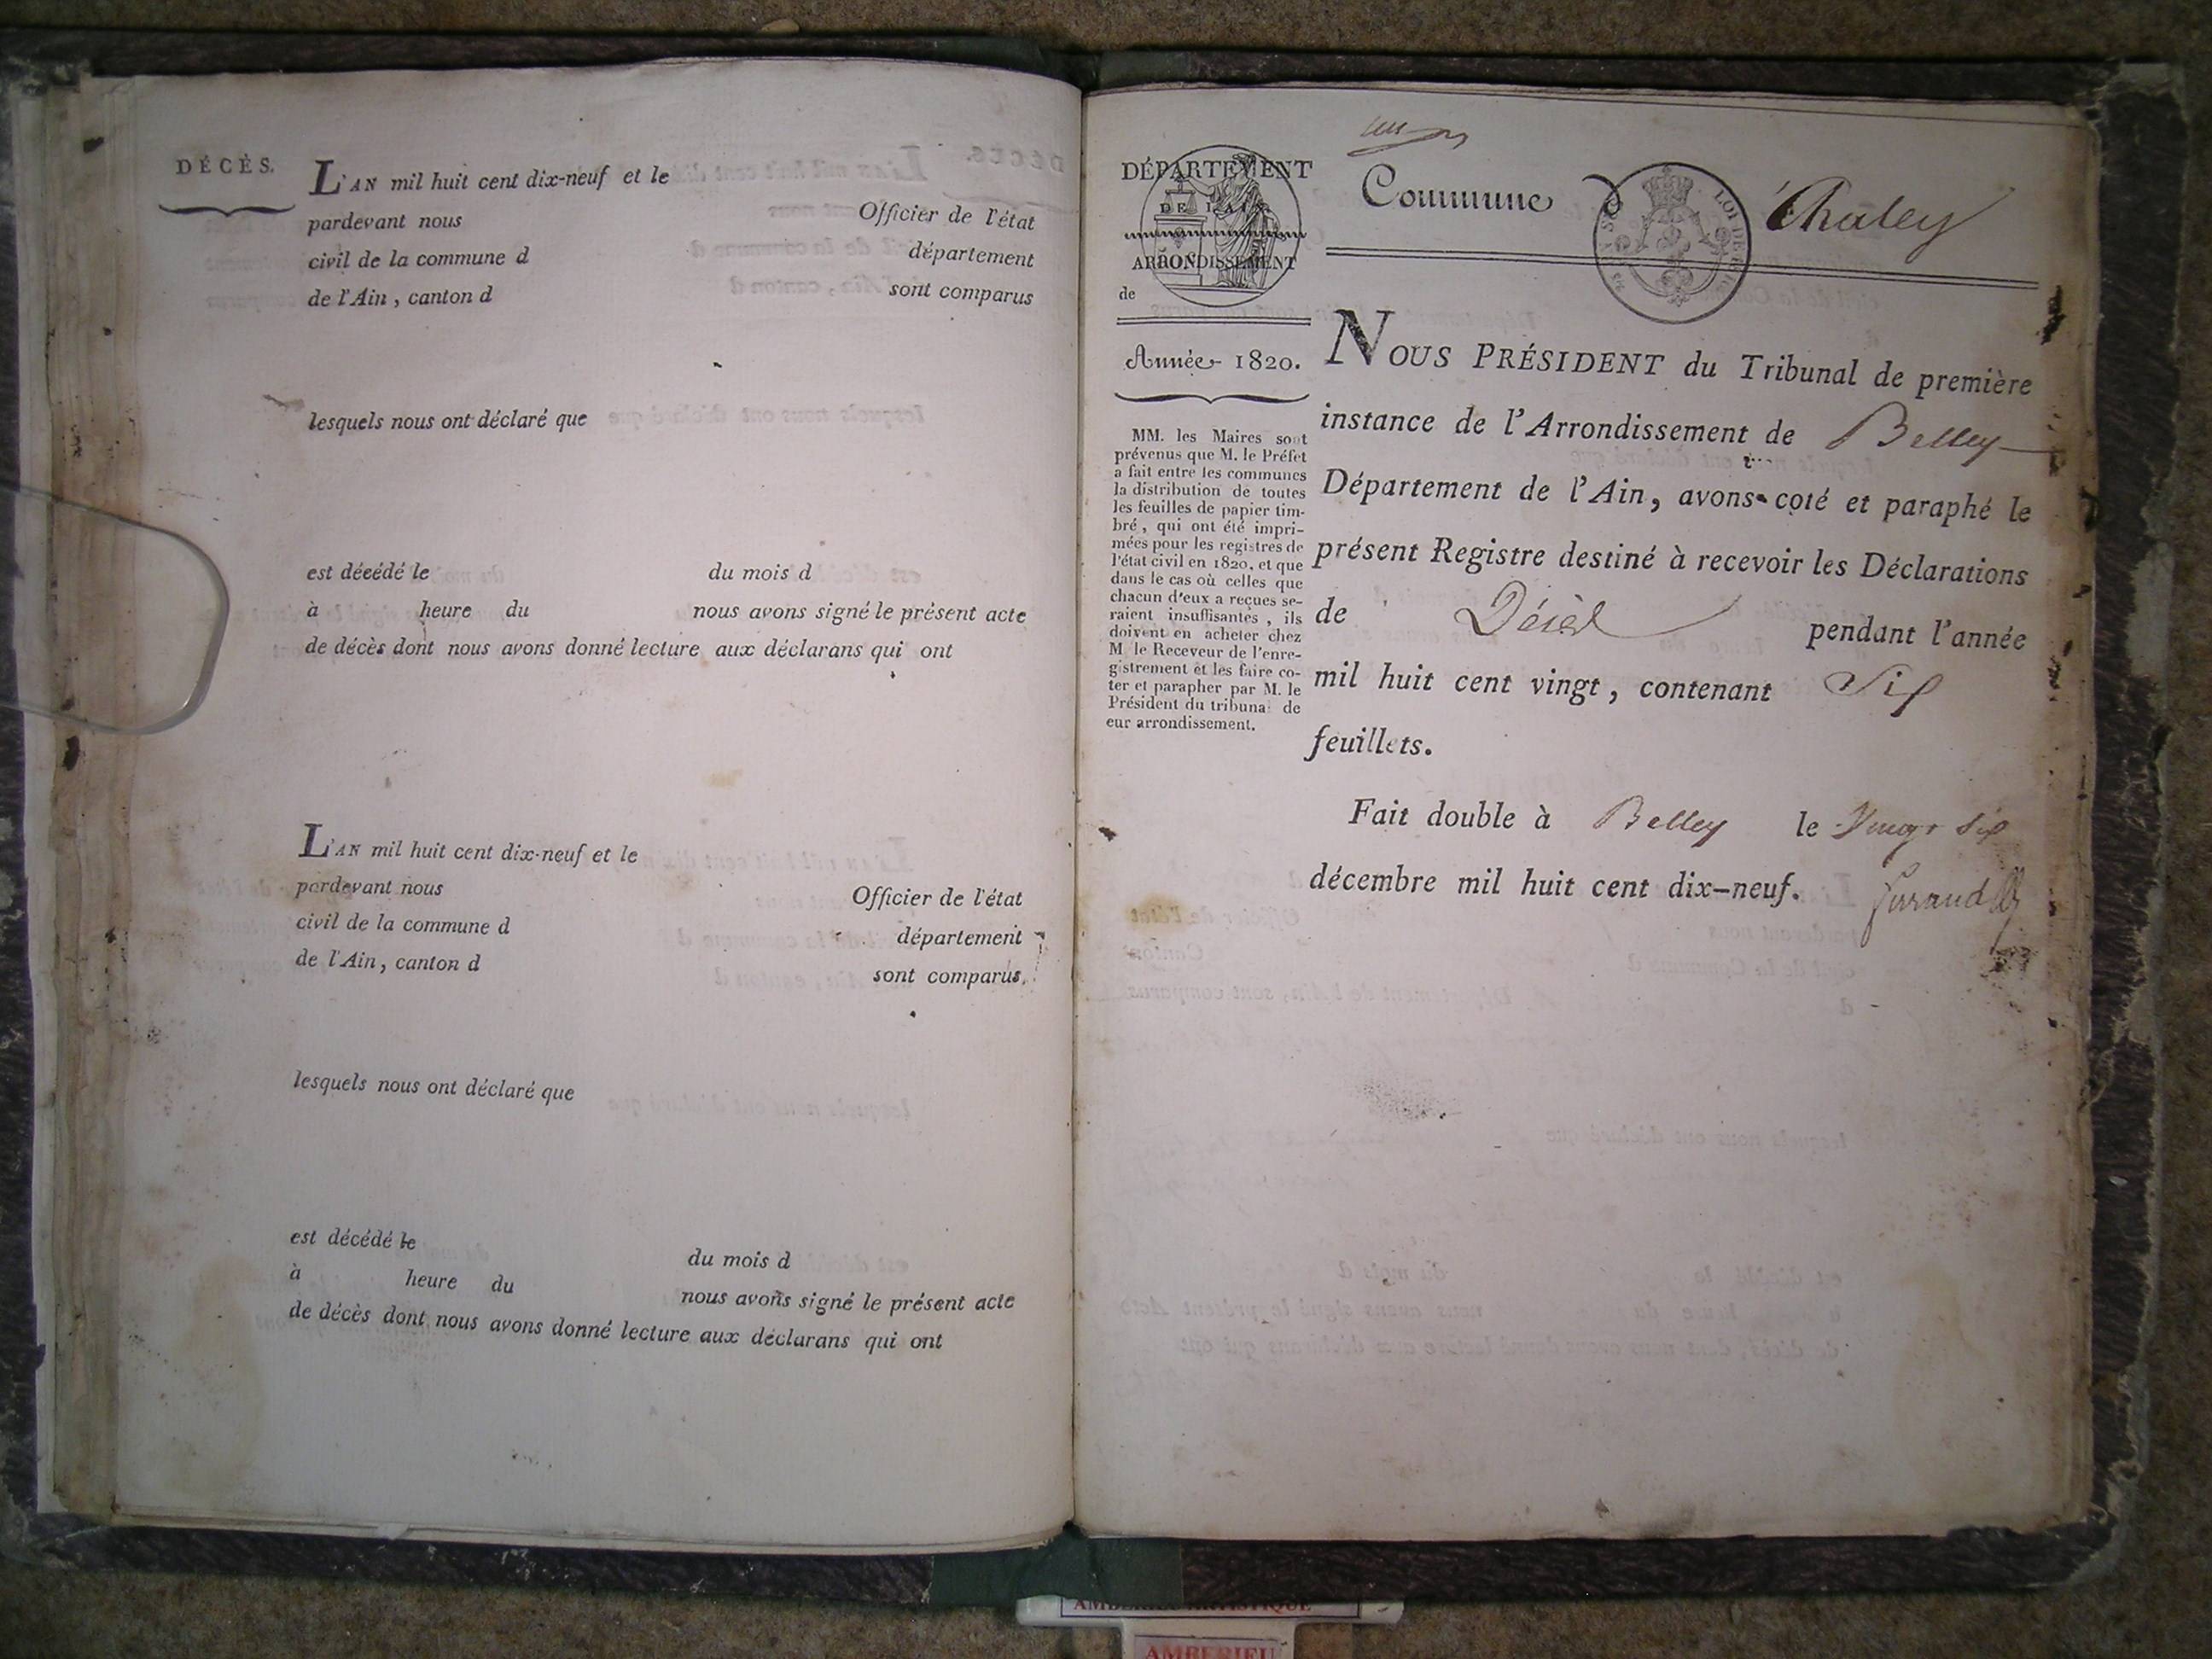 DÉCÈS.
L'AN mil huit cent dix-neuf et le
pardevant nous Officier de l'état
civil de la commune d département
de l'Ain, canton d sont comparus
lesquels nous ont déclaré que
est décédé le du mois d
à heure du nous avons signé le présent acte
de décès dont nous avons donné lecture aux déclarans qui ont
L'AN mil huit cent dix-neuf et le
pardevant nous Officier de l'état
civil de la commune d département
de l'Ain, canton d sont comparus.
lesquels nous ont déclaré que
est décédé le du mois d
à heure du nous avons signé le présent acte
de décès dont nous avons donné lecture aux déclarans qui ont
DÉPARTEMENT
DE L'AIN
ARRONDISSEMENT
de
Année 1820.
MM. les Maires sont
prévenus que M. le Préfet
a fait entre les communes
la distribution de toutes
les feuilles de papier tim-
bré, qui ont été impri-
mées pour les registres de
l'état civil en 1820, et que
dans le cas où celles que
chacun d'eux a reçues se-
raient insuffisantes, ils
doivent en acheter chez
M. le Receveur de l'enre-
gistrement et les faire co-
ter et parapher par M. le
Président du tribunal de
eur arrondissement.
Commune de Chaley
NOUS PRÉSIDENT du Tribunal de première
instance de l'Arrondissement de Belley
Département de l'Ain, avons coté et paraphé le
présent Registre destiné à recevoir les Déclarations
de Décès pendant l'année
mil huit cent vingt, contenant Six
feuillets.
Fait double à Belley le Vingt six
décembre mil huit cent dix-neuf.
AMBERIEU